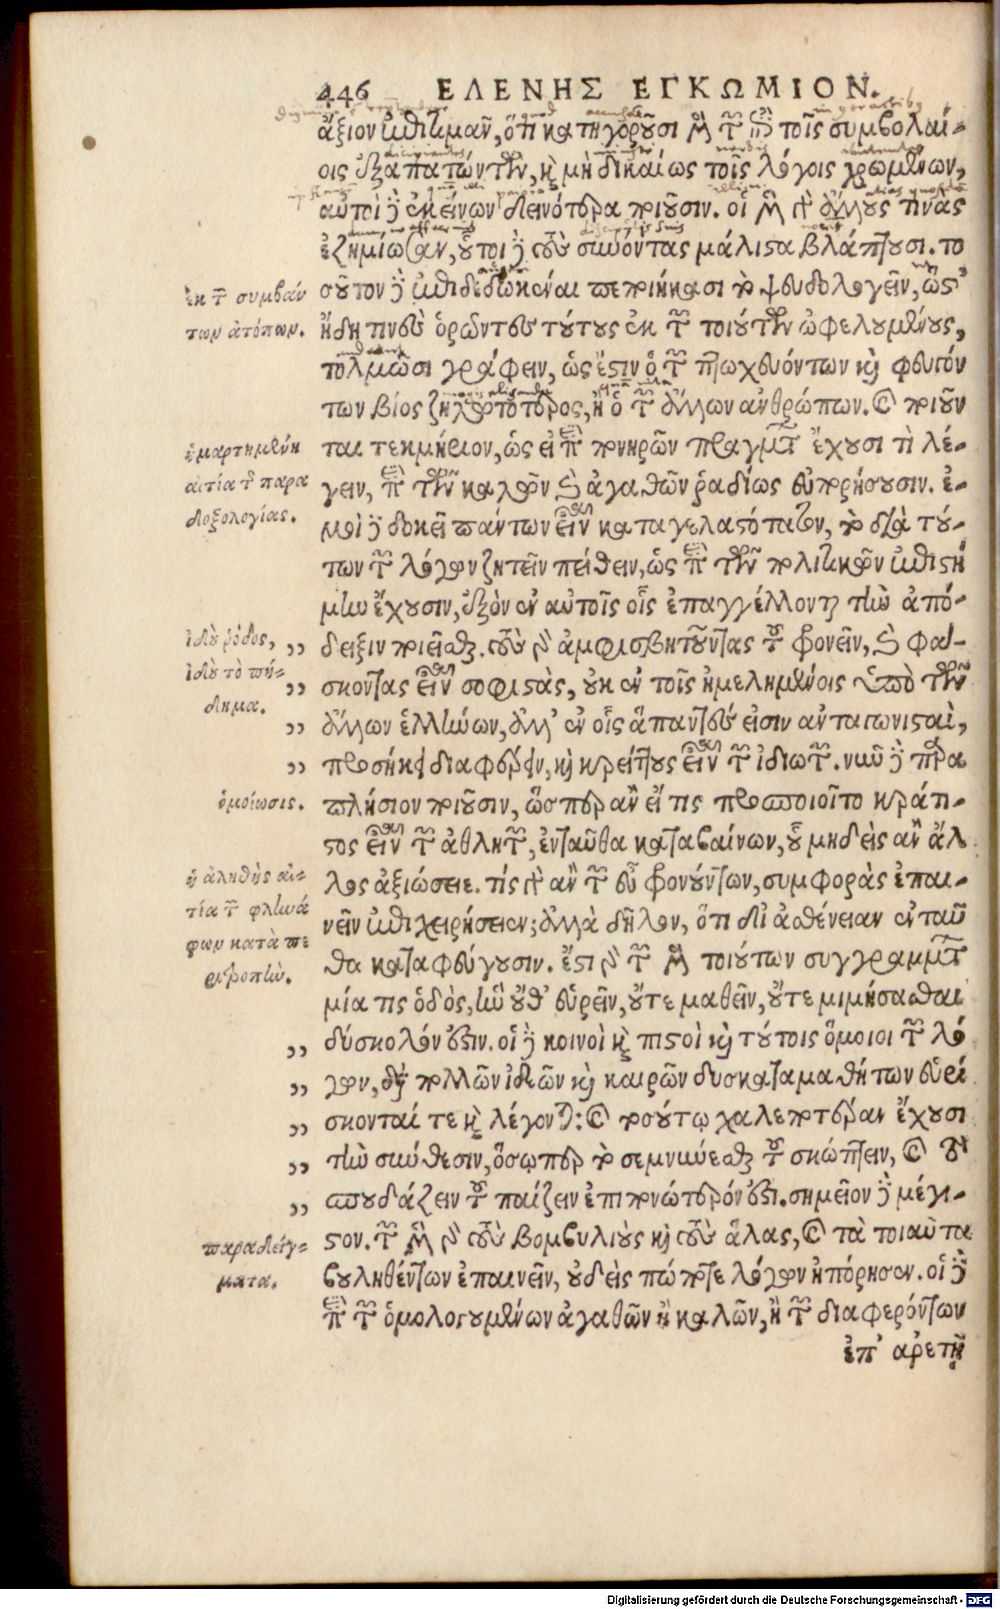 446 ΕΛΕΝΗΣ ΕΓΚΩΜΙΟΝ.
ἄξιον ἐπιτιμᾶν, ὅτι κατηγοροῦσι μὲν τῶν ἐν τοῖς συμβολαί-
οις ἐξαπατώντων, καὶ μὴ δικαίως τοῖς λόγοις χρωμένων,
αὐτοὶ δὲ ἐκείνων δεινότερα ποιοῦσιν. οἱ μὲν γὰρ ἄλλους τινὰς
ἐζημίωσαν, οὗτοι δὲ τοὺς συνόντας μάλιστα βλάπτουσι. το
σοῦτον δὲ ἐπιδεδωκέναι πεποιήκασι τὸ ψευδολογεῖν, ὥστ'
ἤδη τινὲς ὁρῶντες τούτους ἐκ τῶν τοιούτων ὠφελουμένους,
τολμῶσι γράφειν, ὡς ἔστιν ὁ τῶν πτωχευόντων καὶ φευγόν
των βίος ζηλωτότερος, ἢ ὁ τῶν ἄλλων ἀνθρώπων. καὶ ποιοῦν
ται τεκμήριον, ὡς εἰ περὶ πονηρῶν πραγμάτων ἔχουσι τὶ λέ-
γειν, περὶ τῶν καλῶν καὶ ἀγαθῶν ῥαδίως εὐπορήσουσιν. ἐ-
μοὶ δὲ δοκεῖ πάντων εἶναι καταγελαστότατον, τὸ διὰ τού-
των τῶν λόγων ζητεῖν πείθειν, ὡς περὶ τῶν πολιτικῶν ἐπιστή
μην ἔχουσιν, ἐξὸν ἐν αὐτοῖς οἷς ἐπαγγέλλονται τὴν ἀπό-
δειξιν ποιεῖσθαι. τοὺς γὰρ ἀμφισβητοῦντας τοῦ φρονεῖν, καὶ φά-
σκοντας εἶναι σοφιστὰς, οὐκ ἐν τοῖς ἠμελημένοις ὑπὸ τῶν
ἄλλων ἑλλήνων, ἀλλ' ἐν οἷς ἅπαντές εἰσιν ἀνταγωνισταὶ,
προσήκει διαφέρειν, καὶ κρείττους εἶναι τῶν ἰδιωτῶν. νῦν δὲ παρα
πλήσιον ποιοῦσιν, ὥσπερ ἂν εἴ τις προσποιοῖτο κράτι-
στος εἶναι τῶν ἀθλητῶν, ἐνταῦθα καταβαίνων, οὗ μηδεὶς ἂν ἄλ
λος ἀξιώσειε. τίς γὰρ ἂν τῶν εὖ φρονούντων, συμφορὰς ἐπαι-
νεῖν ἐπιχειρήσειεν; ἀλλὰ δῆλον, ὅτι δι' ἀσθένειαν ἐνταῦ
θα καταφεύγουσιν. ἔστι γὰρ τῶν μὲν τοιούτων συγγραμμάτων
μία τις ὁδὸς, ἣν οὔθ' εὑρεῖν, οὔτε μαθεῖν, οὔτε μιμήσασθαι
δύσκολόν ἐστιν. οἱ δὲ κοινοὶ καὶ πιστοὶ καὶ τούτοις ὅμοιοι τῶν λό
γων, διὰ πολλῶν ἰδεῶν καὶ καιρῶν δυσκαταμαθήτων εὑρί
σκονταί τε καὶ λέγονται: καὶ τοσούτῳ χαλεπωτέραν ἔχουσι
τὴν σύνθεσιν, ὅσῳπερ τὸ σεμνύνεσθαι τοῦ σκώπτειν, καὶ τὸ
σπουδάζειν τοῦ παίζειν ἐπιπονώτερόν ἐστι. σημεῖον δὲ μέγι-
στον. τῶν μὲν γὰρ τοὺς βομβυλιοὺς καὶ τοὺς ἅλας, καὶ τὰ τοιαῦτα
βουληθέντων ἐπαινεῖν, οὐδεὶς πώποτε λόγων ἠπόρησεν. οἱ δὲ
περὶ τῶν ὁμολογουμένων ἀγαθῶν ἢ καλῶν, ἢ τῶν διαφερόντων
ἐπ' ἀρετῇ
ἐκ τῶν συμβάν
των ἀτόπων.
ἡμαρτημένη
αἰτία τῆς παρα
δοξολογίας.
ἰδοὺ ῥόδος,
ἰδοὺ τὸ πή-
δημα.
ὁμοίωσις.
ἡ ἀληθὴς αἰ-
τία τῶν φληνά
φων κατὰ πε
ριτροπήν.
παραδείγ-
ματα.
Digitalisierung gefördert durch die Deutsche Forschungsgemeinschaft - DFG